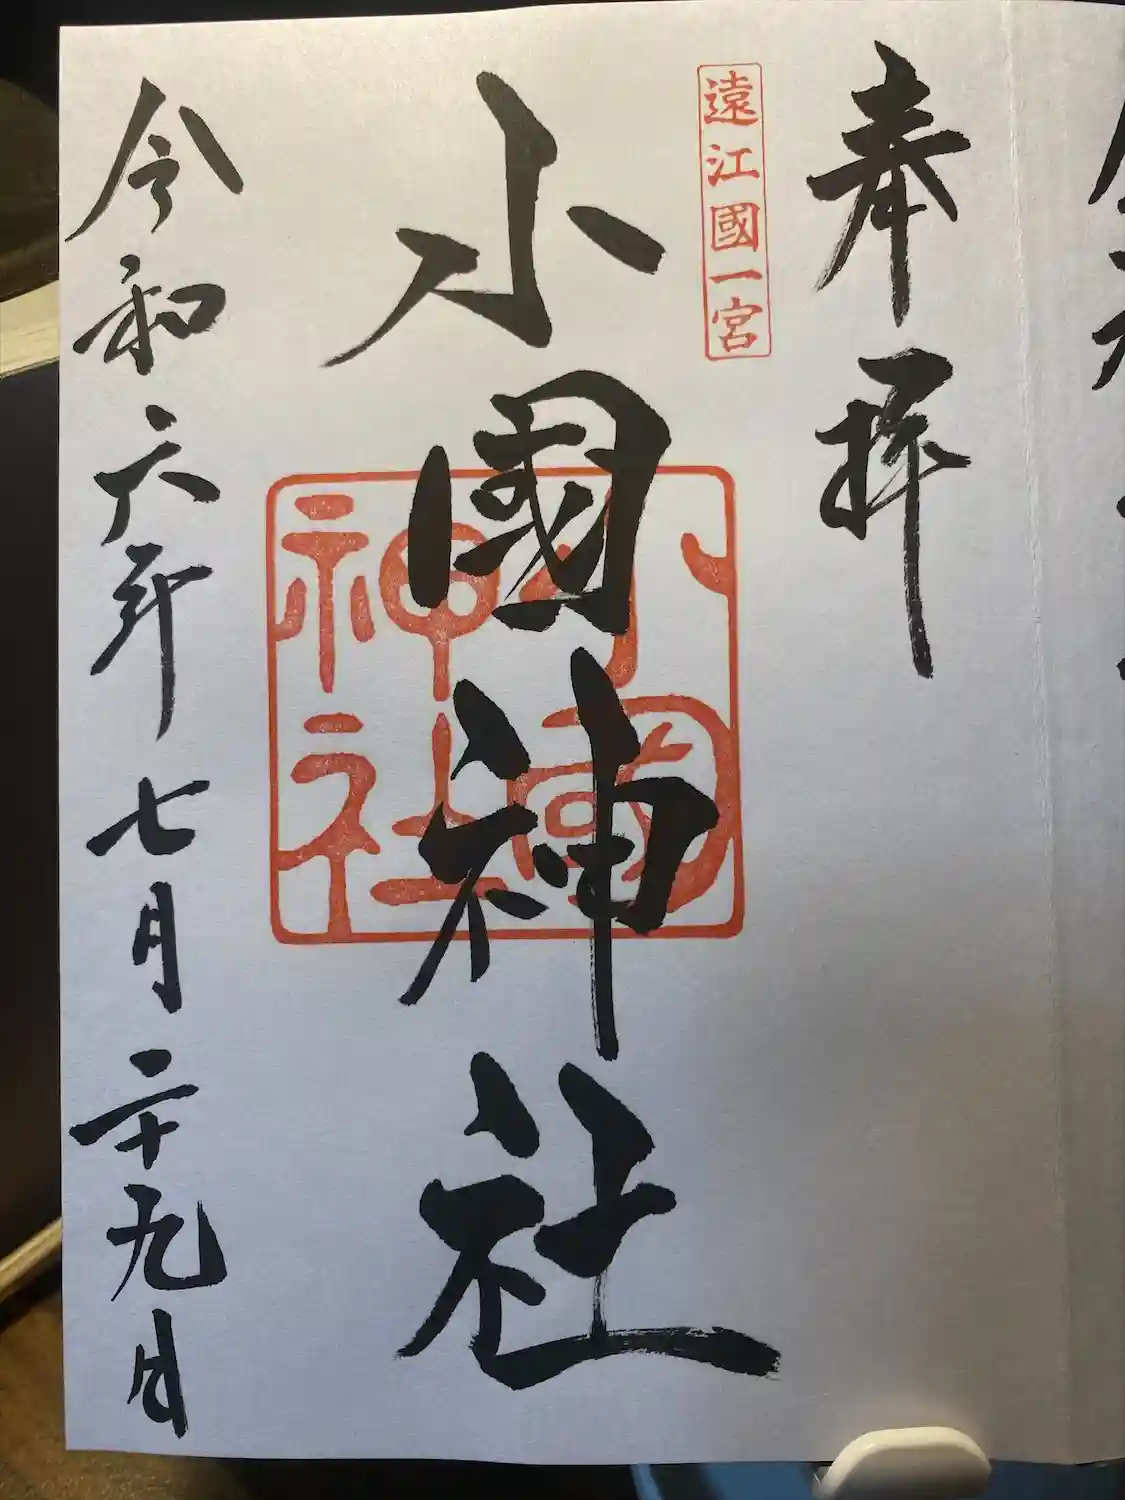 奉拝
遠江國一宮
小國神社
小國
神社
令和六年七月二十九日